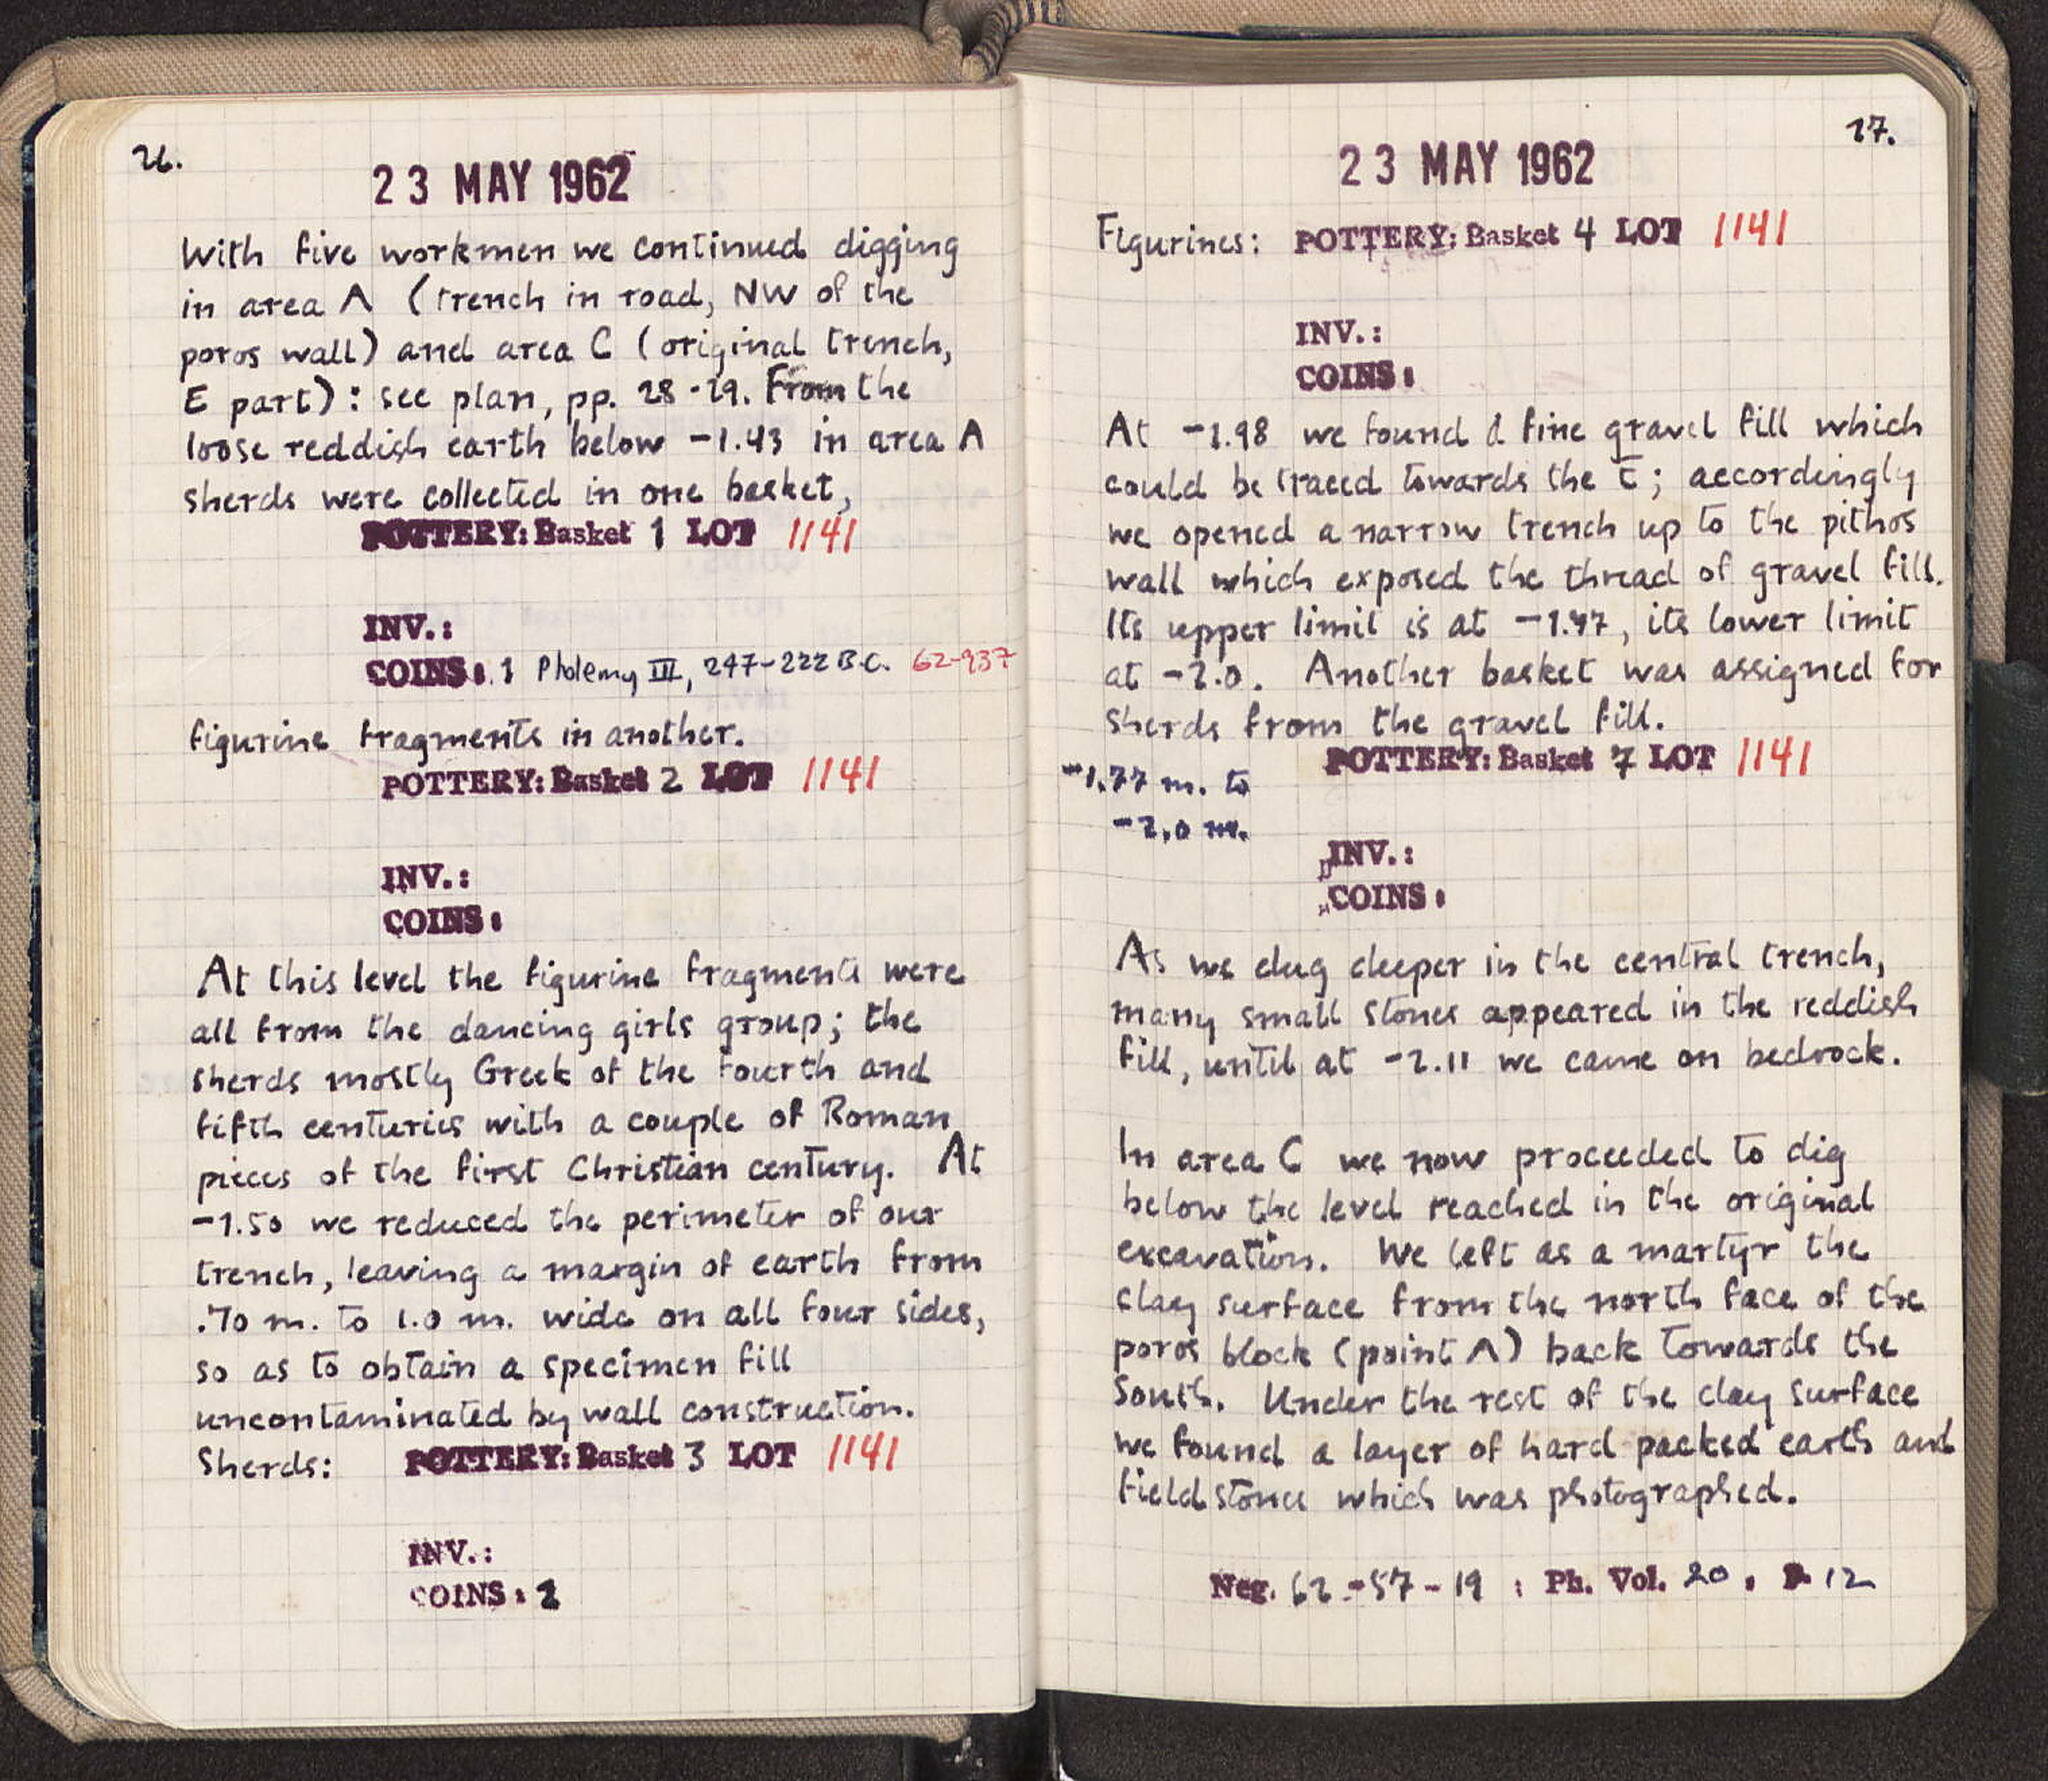 26.
23 MAY 1962
With five workmen we continued digging
in area A (trench in road, NW of the
poros wall) and area C (original trench,
E part): see plan, pp. 28-29. From the
loose reddish earth below -1.43 in area A
sherds were collected in one basket,
POTTERY: Basket 1 LOT 1141
INV.:
COINS: 1 Ptolemy III, 247-222 B.C. 62-937
figurine fragments in another.
POTTERY: Basket 2 LOT 1141
INV.:
COINS:
At this level the figurine fragments were
all from the dancing girls group; the
sherds mostly Greek of the fourth and
fifth centuries with a couple of Roman
pieces of the first Christian century. At
-1.50 we reduced the perimeter of our
trench, leaving a margin of earth from
.70 m. to 1.0 m. wide on all four sides,
so as to obtain a specimen fill
uncontaminated by wall construction.
Sherds: POTTERY: Basket 3 LOT 1141
INV.:
COINS:
27.
23 MAY 1962
Figurines: POTTERY: Basket 4 LOT 1141
INV.:
COINS:
At -1.98 we found a fine gravel fill which
could be traced towards the E; accordingly
we opened a narrow trench up to the pithos
wall which exposed the thread of gravel fill.
Its upper limit is at , its lower limit
at -2.0. Another basket was assigned for
sherds from the gravel fill.
POTTERY: Basket 7 LOT 1141
-1.77 m. to
-2.0 m.
INV.:
COINS:
As we dug deeper in the central trench,
many small stones appeared in the reddish
fill, until at -2.11 we came on bedrock.
In area C we now proceeded to dig
below the level reached in the original
excavation. We left as a martyr the
clay surface from the north face of the
poros block (point A) back towards the
South. Under the rest of the clay surface
we found a layer of hard packed earth and
field stones which was photographed.
Neg. 62-57-19; Ph. Vol. 20, P. 12